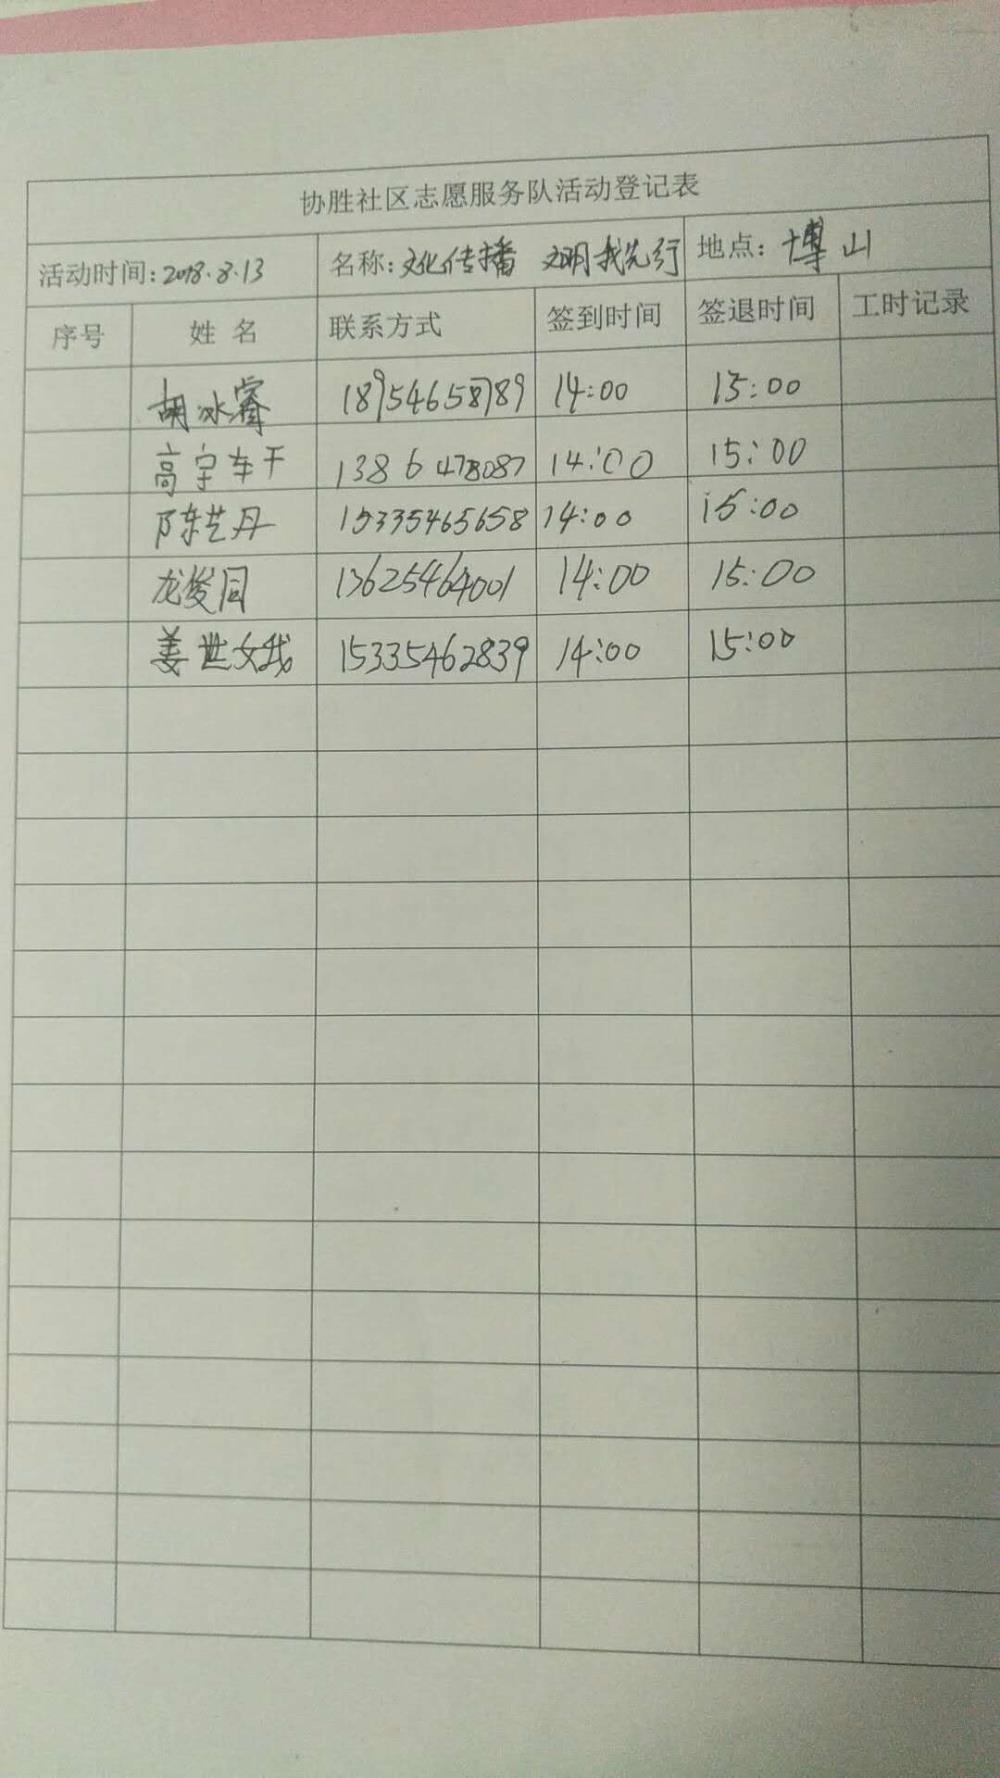 协胜社区志愿服务队活动登记表
活动时间:2018.8.13 名称:文化传播 文明我先行 地点:博山
序号 姓名 联系方式 签到时间 签退时间 工时记录
胡冰睿 18954658789 14:00 15:00
高宇轩 1386478087 14:00 15:00
陈艺丹 15335465658 14:00 15:00
龙俊国 13625464001 14:00 15:00
姜世娥 15335462839 14:00 15:00